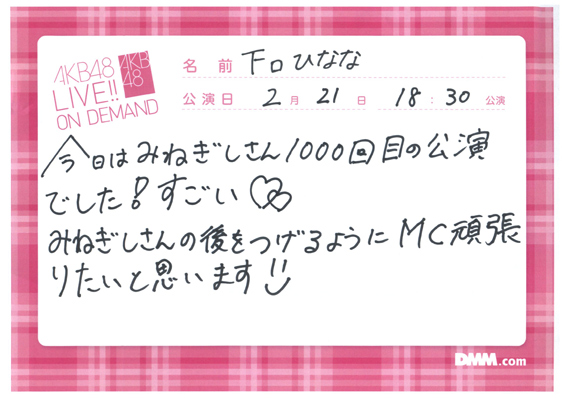 AKB48
LIVE!!
ON DEMAND
AKB
48
名前 下口ひなな
公演日 2月21日 18:30公演
今日はみねぎしさん1000回目の公演
でした!すごい♡
みねぎしさんの後をつげるようにMC頑張
りたいと思います!!
DMM.com